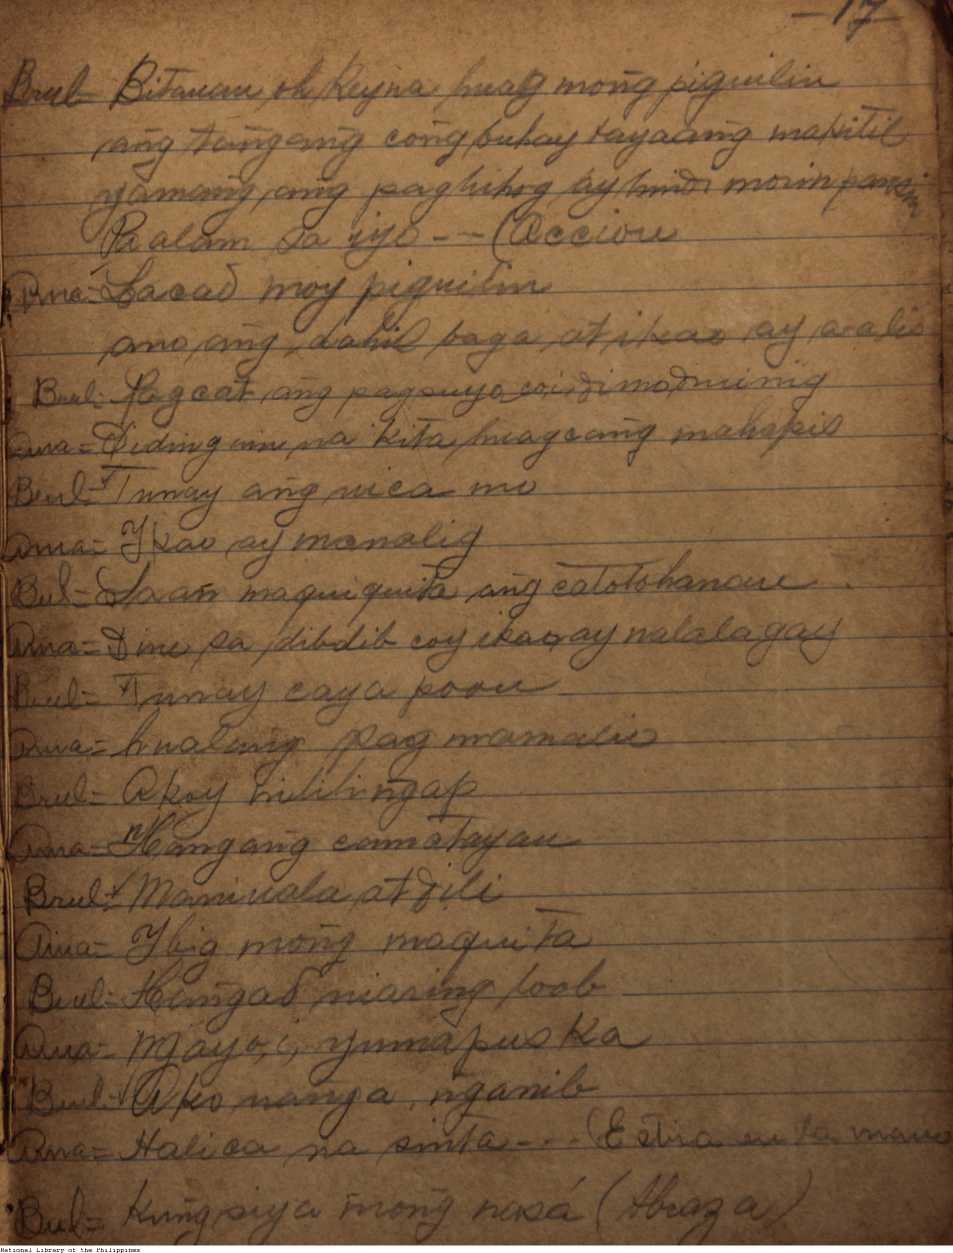 -17-
Brul- Bitauan oh Reyna huag mong piguilin
ang tangang cong buhay bayaang makitil
yamang ang paghihog ay hindi mo rin pansin
Paalam sa iyo --- (Accion
Ana= Lacad moy piguilin
ano ang dahil baga at ikao ay aalis
Brul- Pagcat ang pagsuyo co, i, di mo dininig
Ana= Didinguin na kita huag cang mahapis
Brul- Tunay ang uica mo
Ana= Ykao ay manalig
Brul- Saan maquiquita ang catotohanan
Ana= Dine sa dibdib coy ikao ay nalalagay
Brul- Tunay caya poon
Ana= hualang pag mamaliu
Brul- Akoy lilingap
Ana= Hangang camatayan
Brul- Maniuala at dili
Ana= Ybig mong maquita
Brul- Hangad niaring loob
Ana= Mayo, i, yumapus ka
Brul- Ako nanga, nganib
Ana= Halica na sinta --- (Estira en la mano
Brul= Kung siya mong nasá (Abraza)
National Library of the Philippines